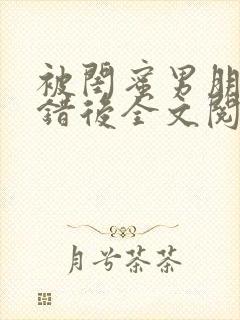 被閨蜜男朋
錯後全文閱
月兮茶茶